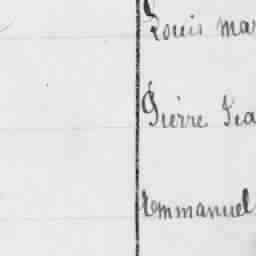 Louis mar
Pierre Jea
Emmanuel